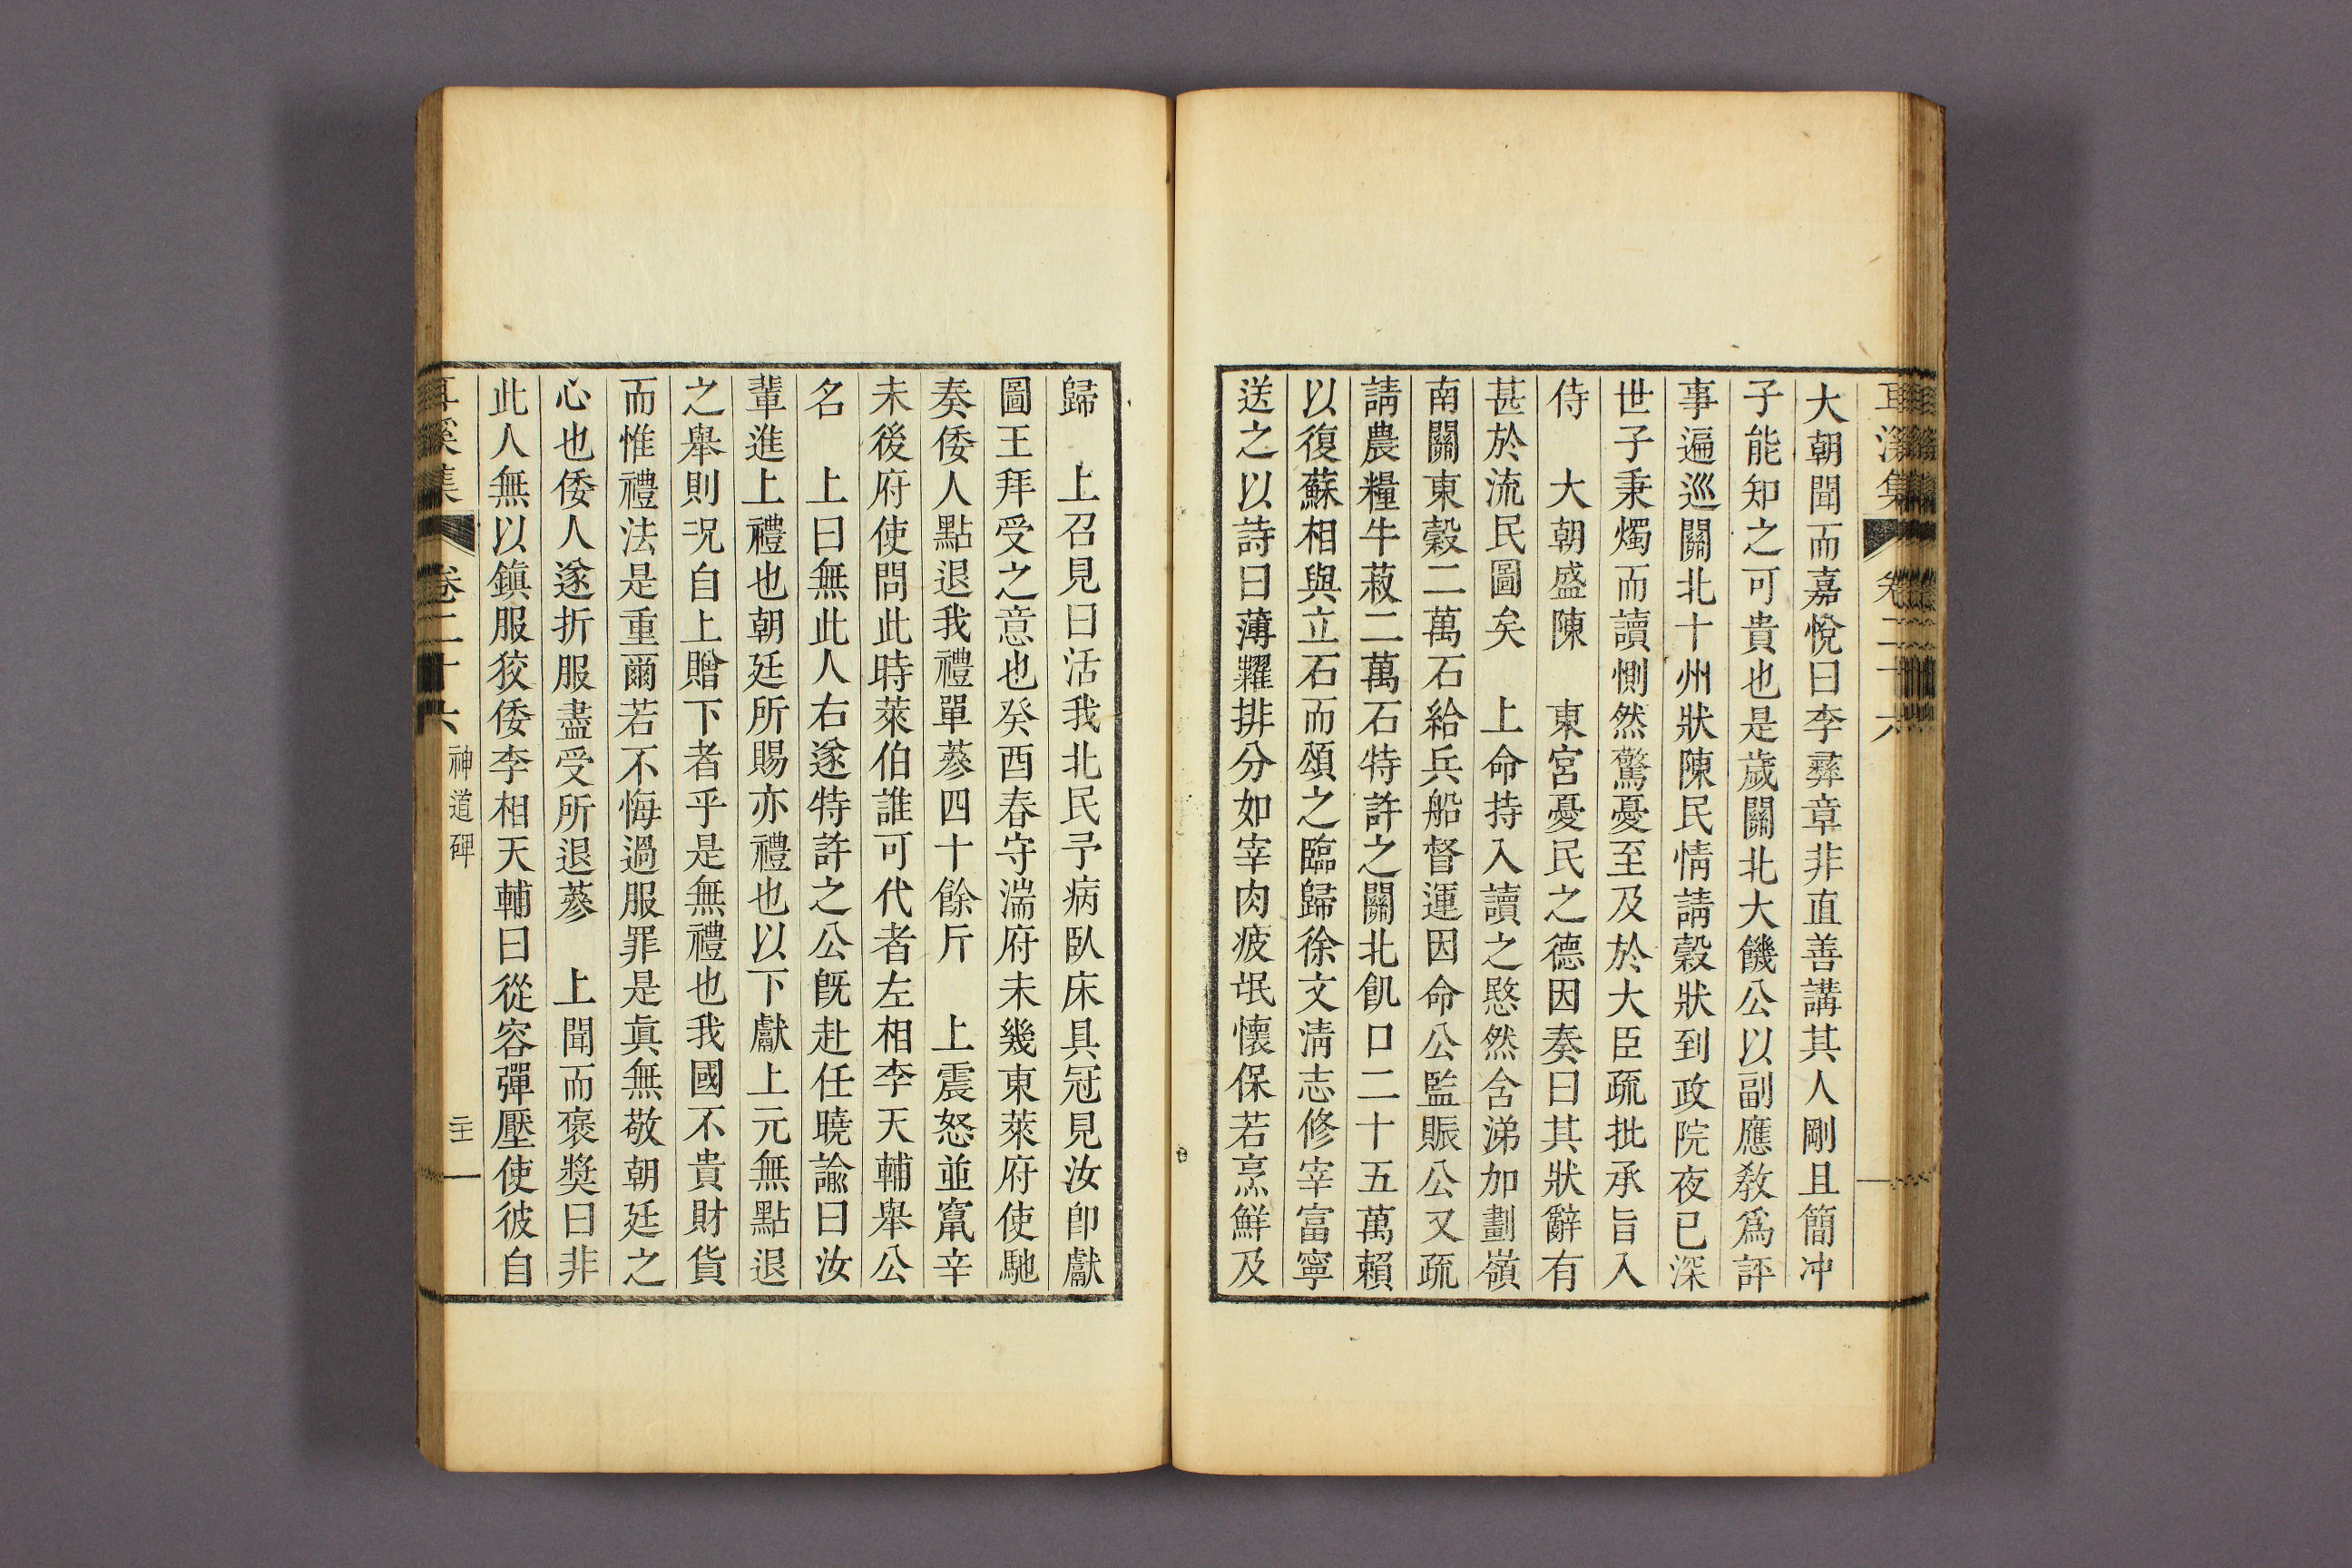 耳溪集 卷二十六
大朝聞而嘉悅曰李彛章非直善講其人剛且簡冲
子能知之可貴也是歲關北大饑公以副應敎爲評
事遍巡關北十州狀陳民情請穀狀到政院夜已深
世子秉燭而讀惻然驚憂至及於大臣疏批承旨入
侍 大朝盛陳 東宮憂民之德因奏曰其狀辭有
甚於流民圖矣 上命持入讀之愍然含涕加劃嶺
南關東穀二萬石給兵船督運因命公監賑公又疏
請農糧牛菽二萬石特許之關北飢口二十五萬賴
以復蘇相與立石而頌之臨歸徐文淸志修宰富寧
送之以詩曰薄糶排分如宰肉疲氓懷保若烹鮮及
歸 上召見曰活我北民予病臥床具冠見汝卽獻
圖王拜受之意也癸酉春守湍府未幾東萊府使馳
奏倭人點退我禮單蔘四十餘斤 上震怒並竄辛
未後府使問此時萊伯誰可代者左相李天輔舉公
名 上曰無此人右遂特許之公旣赴任曉諭曰汝
輩進上禮也朝廷所賜亦禮也以下獻上元無點退
之舉則况自上贈下者乎是無禮也我國不貴財貨
而惟禮法是重爾若不悔過服罪是眞無敬朝廷之
心也倭人遂折服盡受所退蔘 上聞而褒獎曰非
此人無以鎭服狡倭李相天輔曰從容彈壓使彼自
耳溪集 卷二十六 神道碑